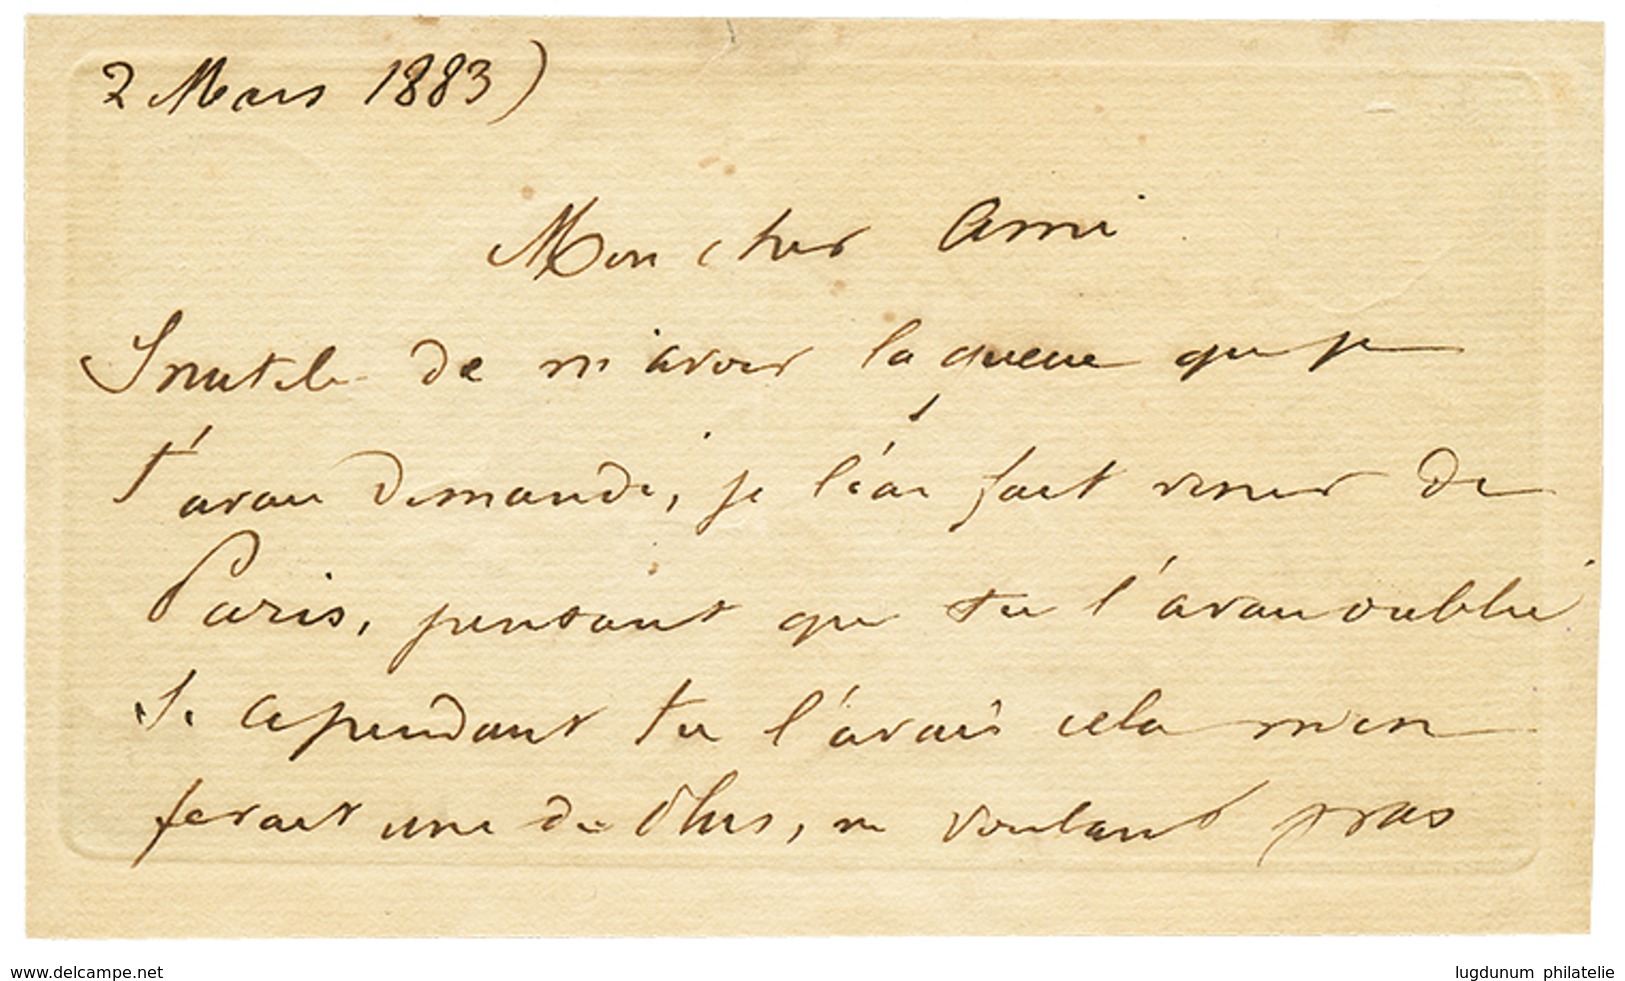 2 Mars 1883)
Mon cher Ami
Inutile de m'avoir la queue que je
t'avais demandé, je l'ai fait venir de
Paris, pensant que tu l'avais oublié
Si cependant tu l'avais cela m'en
ferait une de plus, ne voulant pas
www.delcampe.net
lugdunum philatelie